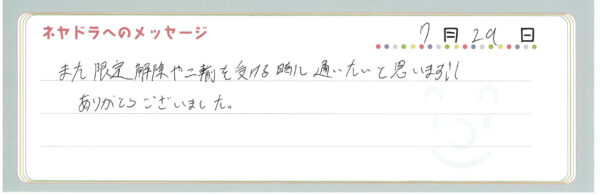 ネヤドラへのメッセージ
7月29日
また限定解除や二輪を受ける時に通いたいと思います!!
ありがとうございました。